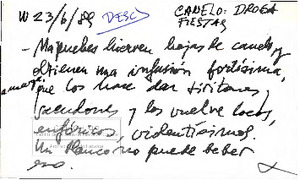 W 23/6/89 DESC) CANELO: DROGA
FIESTAS
- Mapuches hierven hojas de canelo y
obtienen una infusión fortísima,
amarga, que los hace dar tiritones,
y los vuelve locos,
eufóricos, violentísimos.
Un blanco no puede beber
eso.